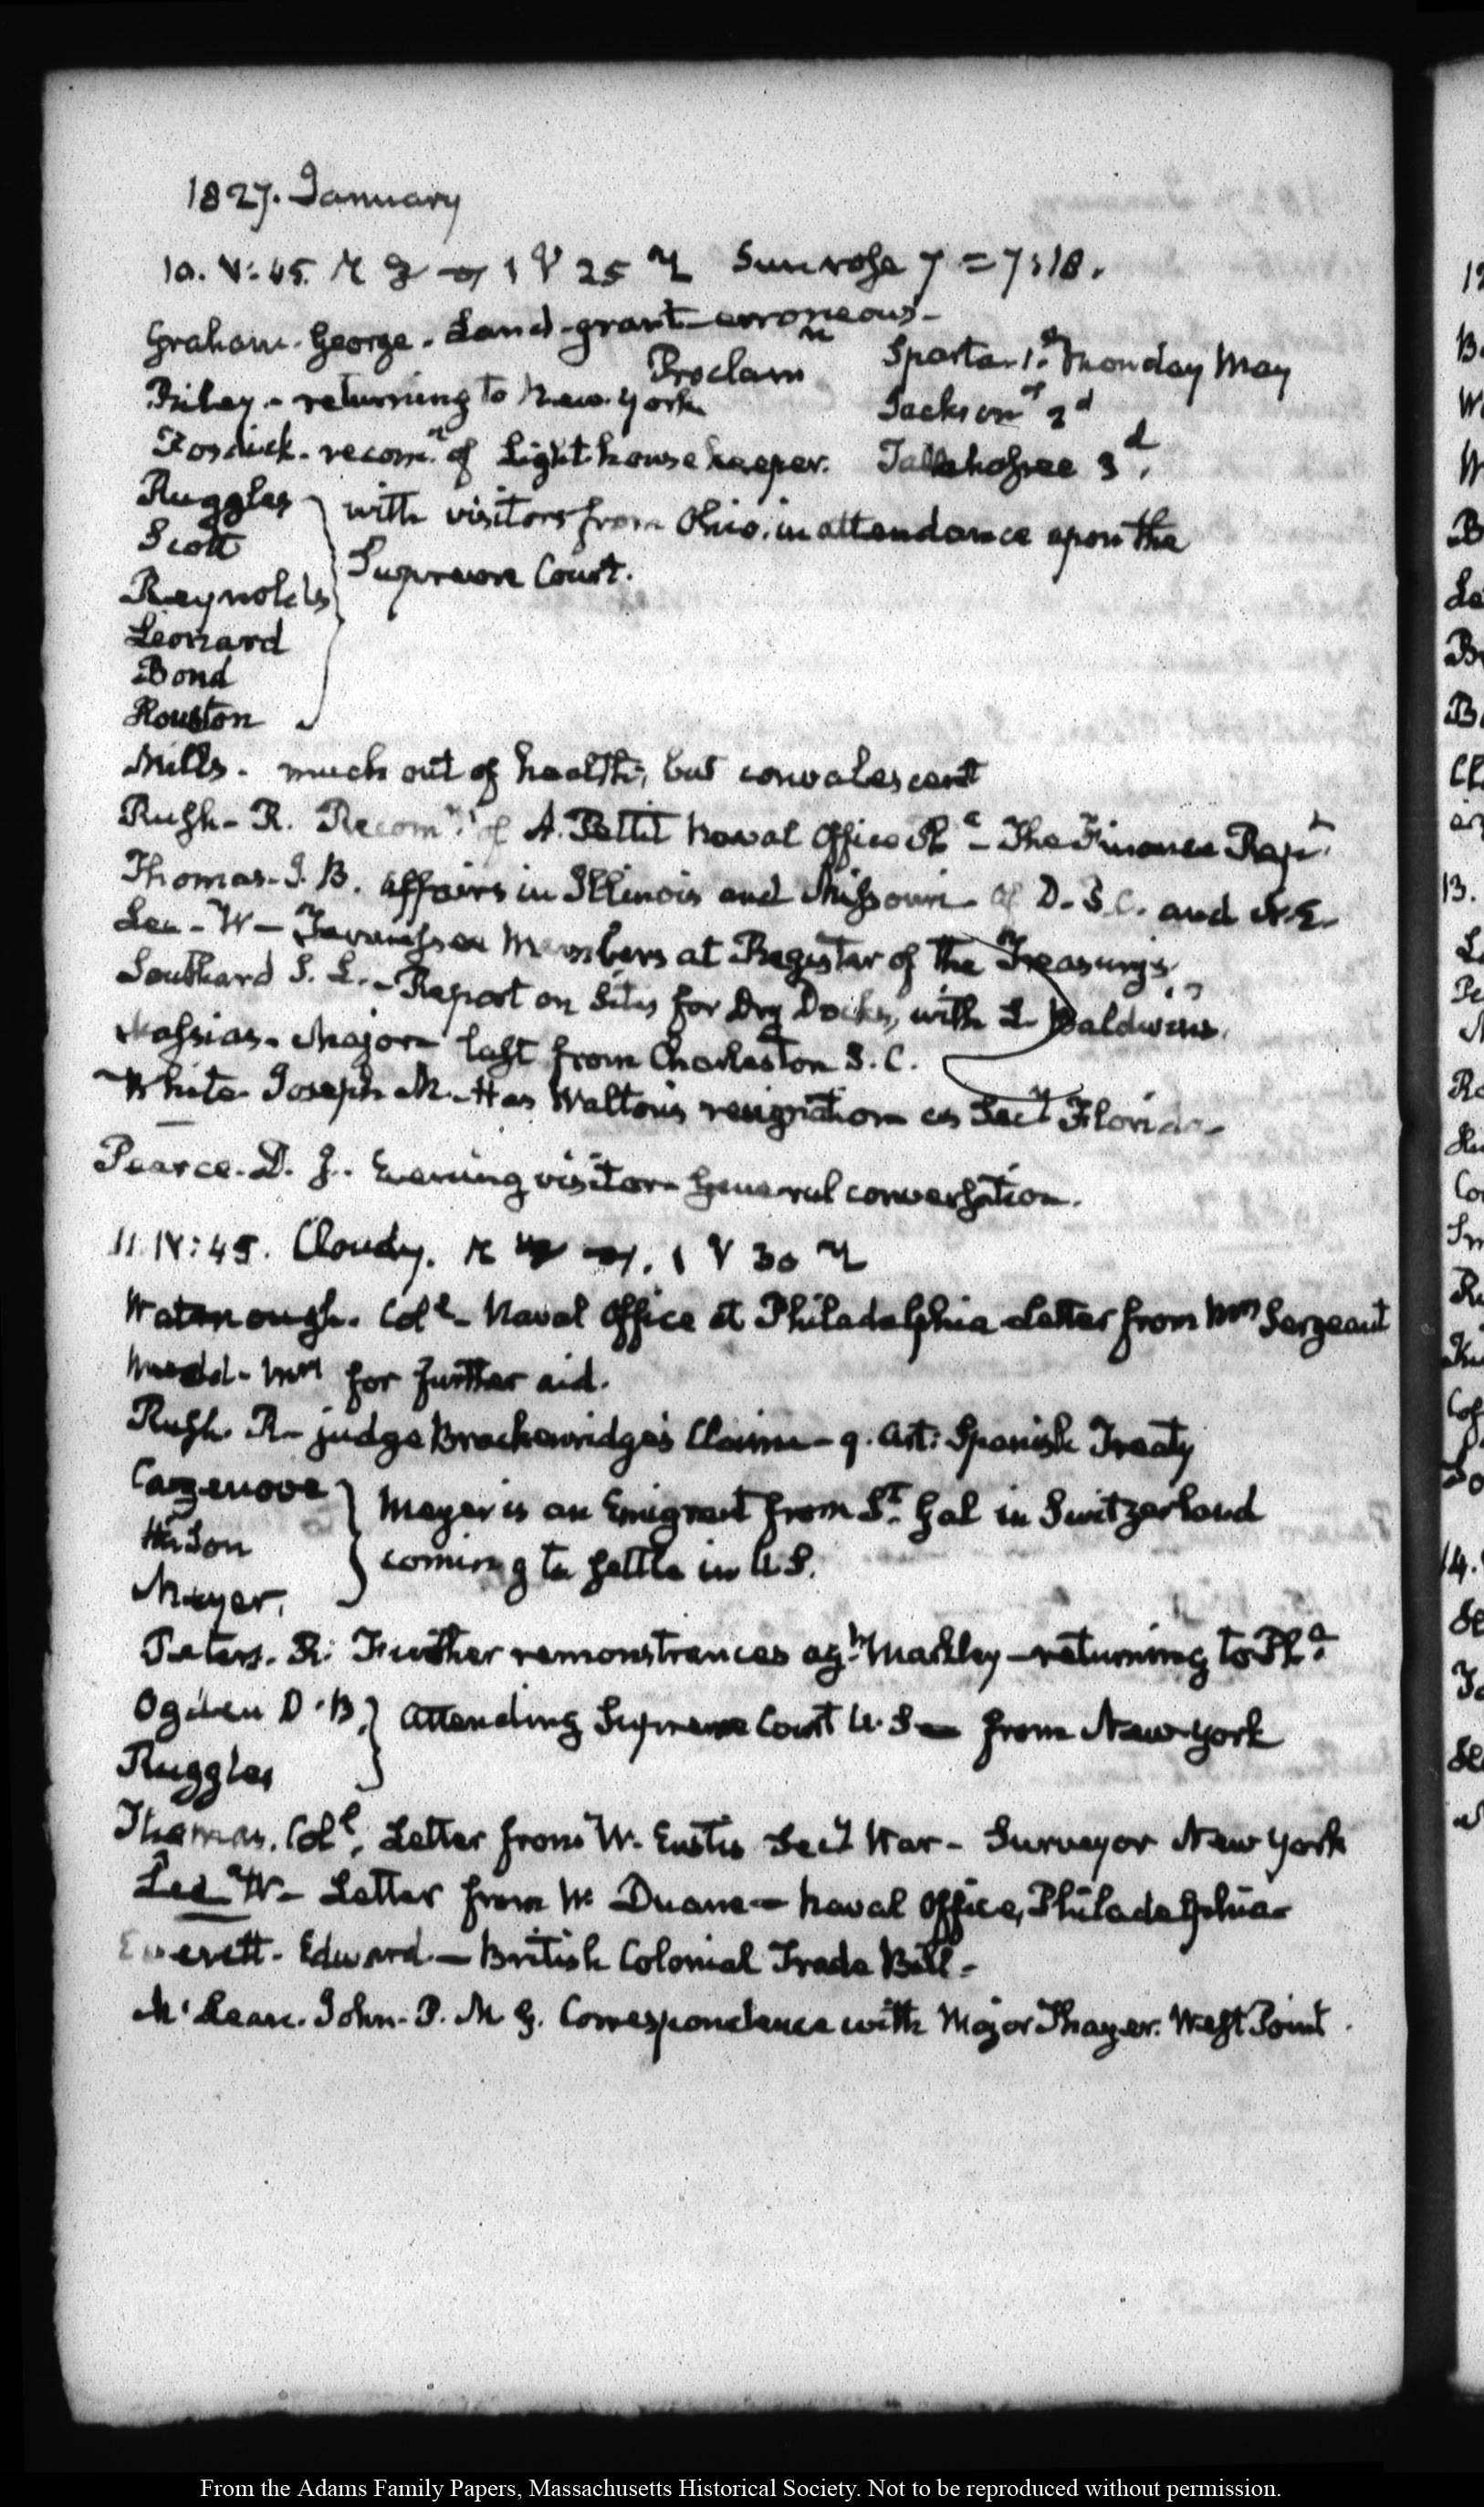 1827. January
10. V:45. Sun rose 7 = 7:18.
Graham. George. Land-grant erroneous-
Proclamn Sparta-1.st Monday May
Riley- returning to New-York Jackson 2d
Fosdick- recomn. of Light house keeper. Tallahassee 3d.
Ruggles } with visitors from Ohio, in attendance upon the
Scott Supreme Court.
Reynolds
Leonard
Bond
Houston
Mills. much out of health, but convalescent
Rush- R. Recomn. of A. Pettit Naval Office Pha- The Finance Rept.
Thomas-J. B. Affairs in Illinois and Missouri- of D. S.C. and N.E.
Lee-W- Members at Register of the Treasury's
Southard S. L.- Report on Sites for Dry Docks, with L. Baldwin's.
Massias. Major- last from Charleston S.C.
White Joseph M.- Has Walton's resignation as Secy Florida-
Pearce. D. J. Evening visitor- General conversation.
11. IV:45. Cloudy. 30
Watmough. Coll- Naval Office at Philadelphia-Letter from Mrs Sergeant
Mrs for further aid.
Rush. R- judge Brackenridge's Claim- 9. Art: Spanish Treaty
Cazenove } Meyer is an Emigrant from St. Gal in Switzerland
His Son coming to settle in U.S.
Meyer.
Peters. R: Further remonstrances agt. Markley- returning to Pha.
Ogden D.B } attending Supreme Court U.S- from New-York
Ruggles
Thomas. Coll. Letter from W. Eustis Secy War- Surveyor New York
Lee W- Letter from W. Duane- Naval Office, Philadelphia-
Everett. Edward- British Colonial Trade Bill-
McLean. John. P. M. G. Correspondence with Major Thayer. West Point.
From the Adams Family Papers, Massachusetts Historical Society. Not to be reproduced without permission.